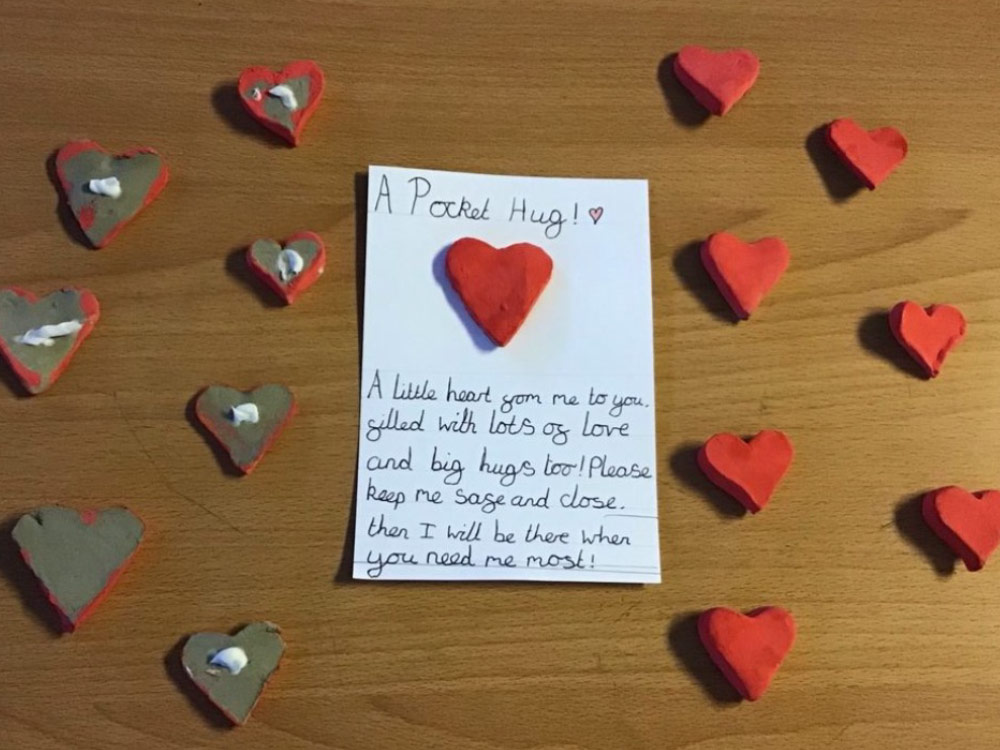 A Pocket Hug! ♥
A little heart from me to you.
filled with lots of love
and big hugs too! Please
keep me safe and close.
then I will be there when
you need me most!